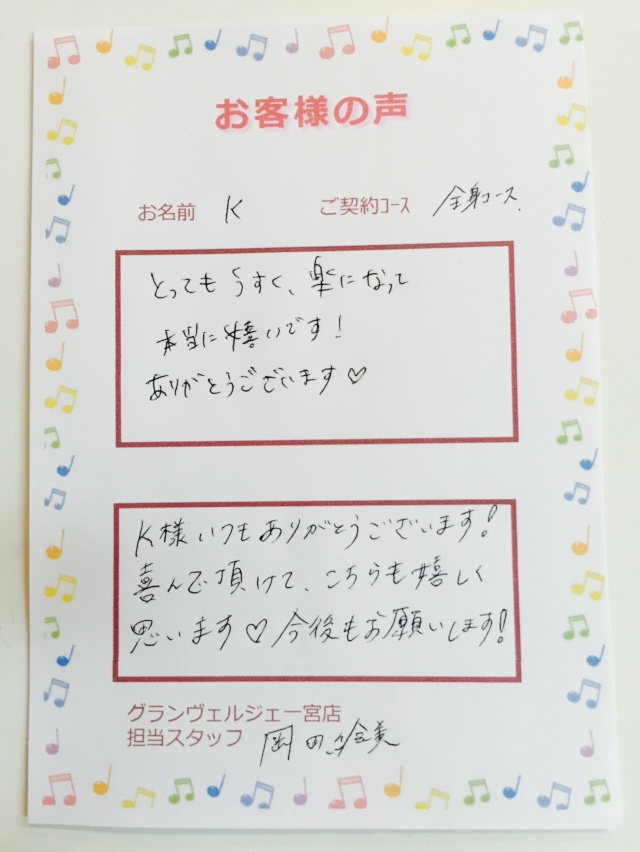 お客様の声
お名前 K ご契約コース 全身コース.
とってもうすく、楽になって
本当に嬉いです!
ありがとうございます♡
K様いつもありがとうございます!
喜んで頂けて、こちらも嬉しく
思います♡今後もお願いします!
グランヴェルジェ一宮店
担当スタッフ 岡田絵美